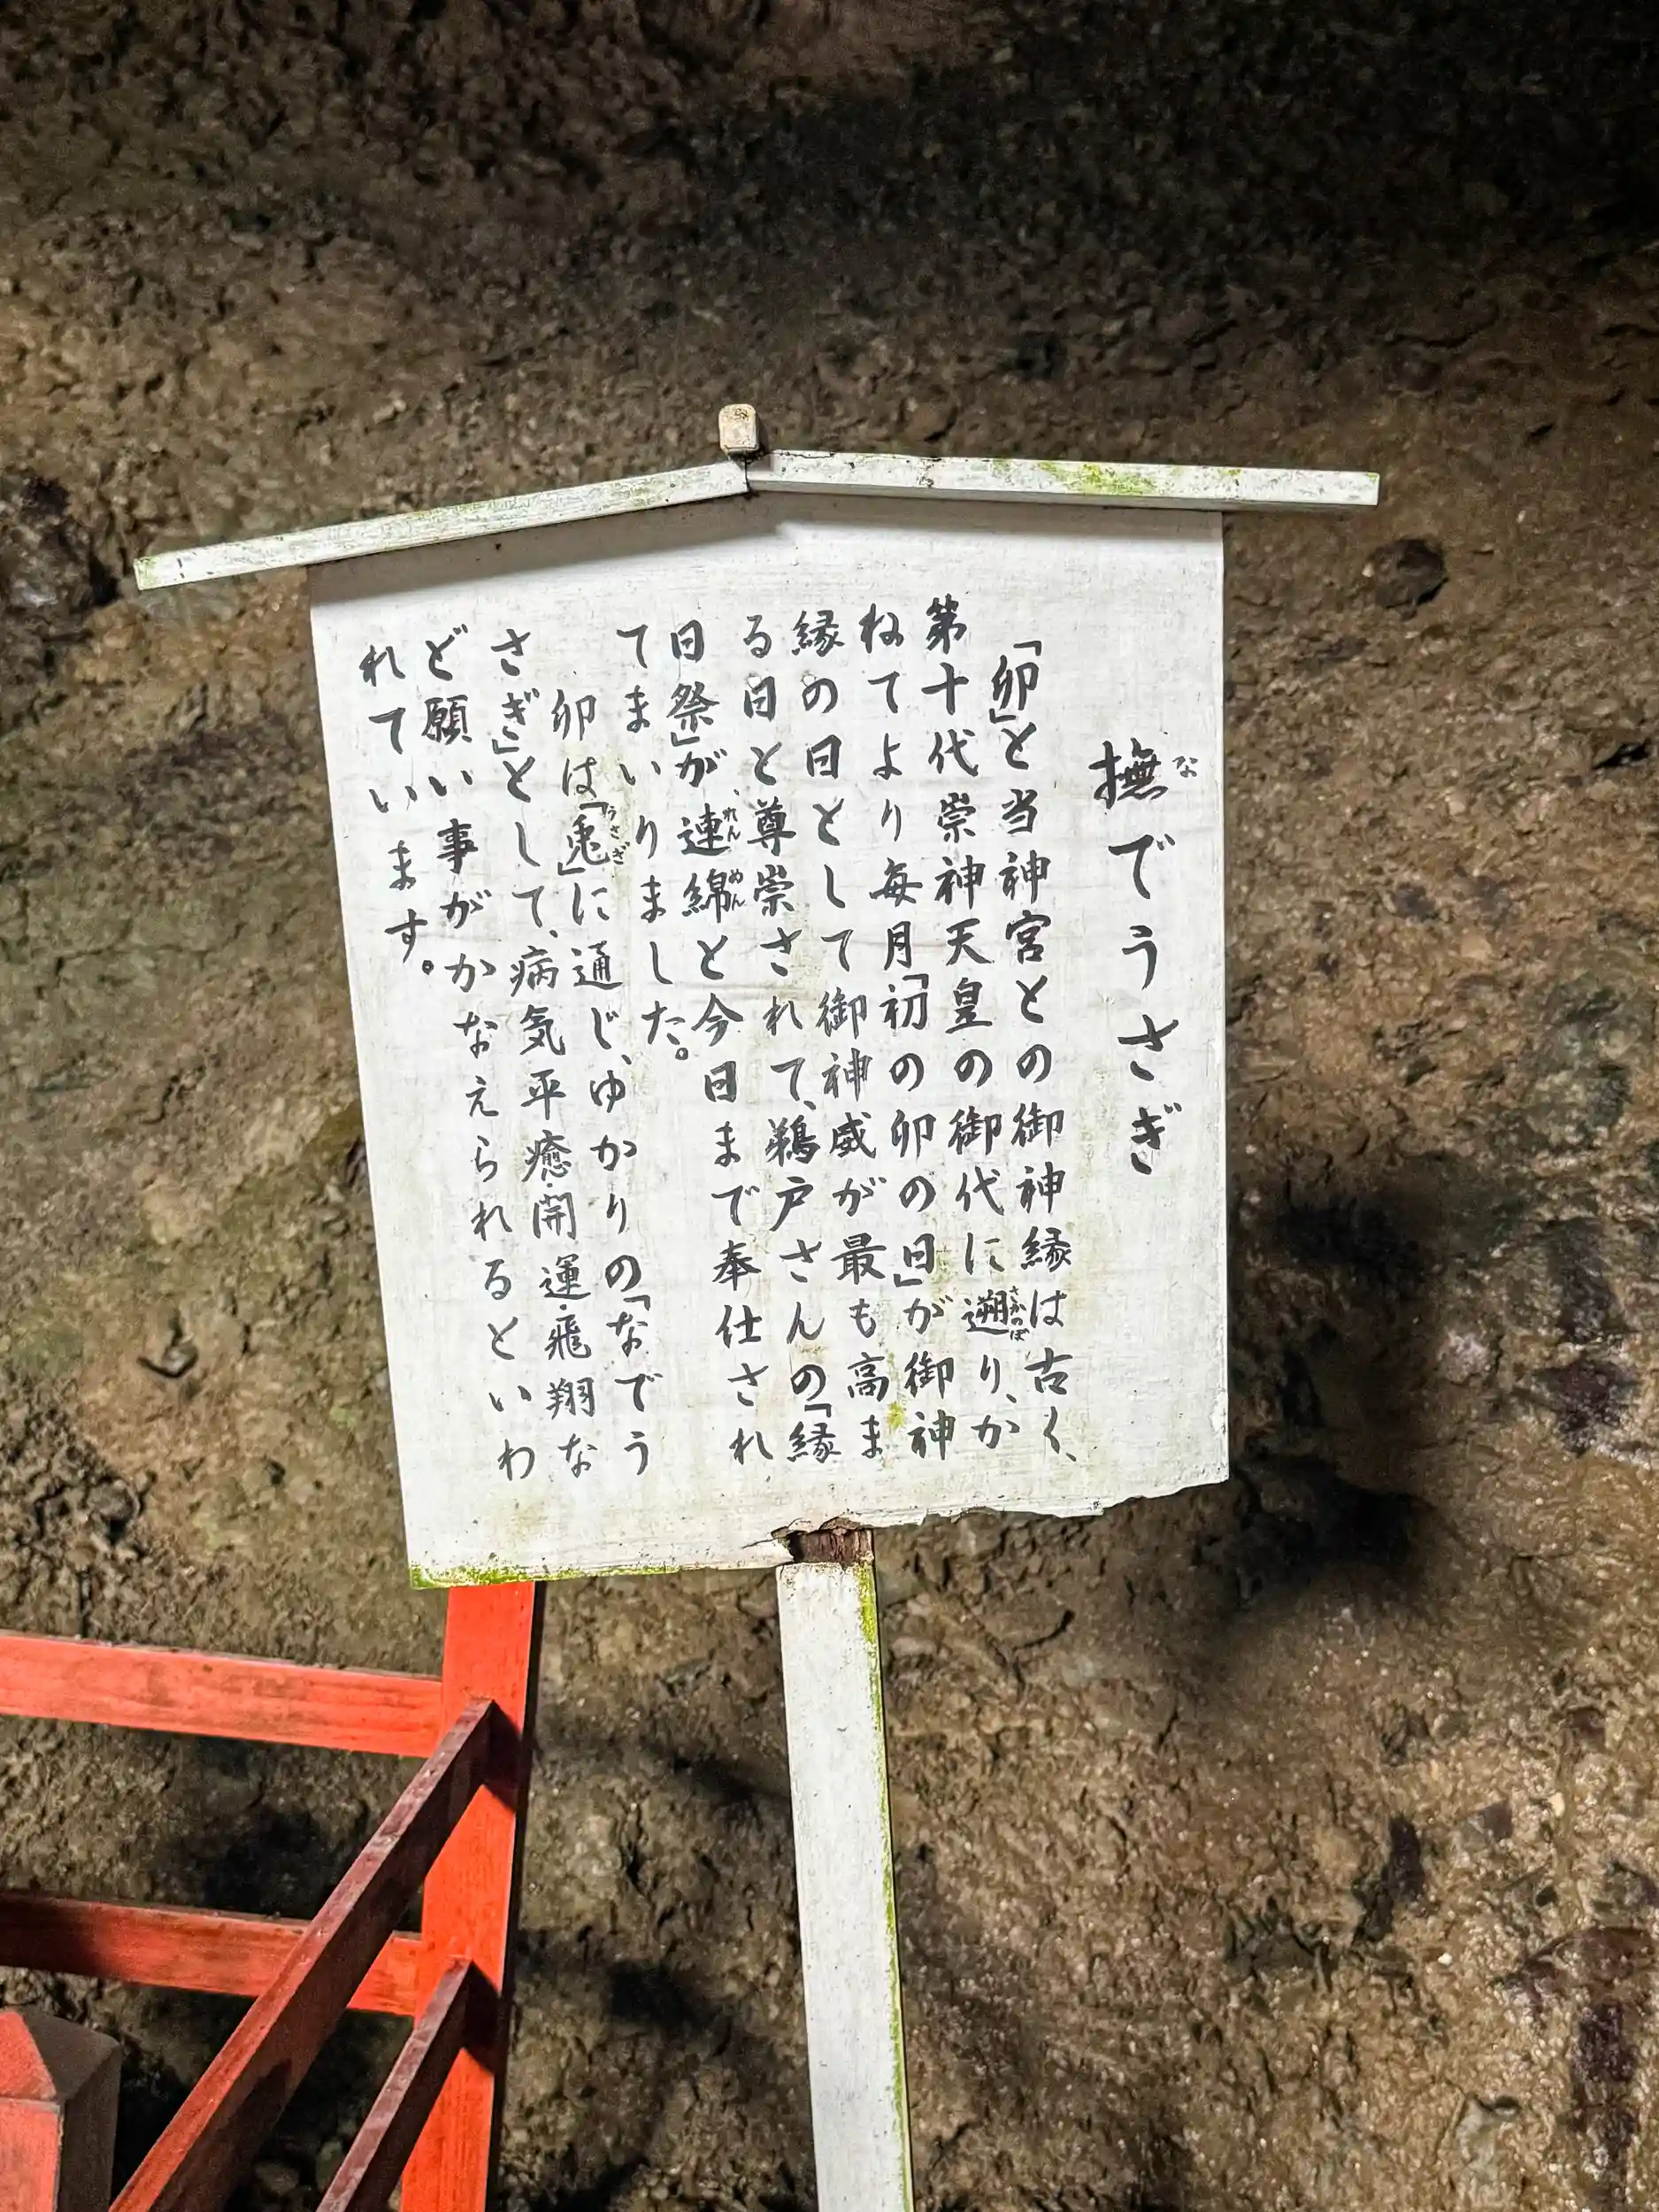 撫でうさぎ
「卯」と当神宮との御神縁は古く、
第十代崇神天皇の御代に遡り、か
ねてより毎月「初の卯の日」が御神
縁の日として御神威が最も高ま
る日と尊崇されて、鵜戸さんの「縁
日祭」が、連綿と今日まで奉仕され
てまいりました。
卯は「兎」に通じ、ゆかりの「なでう
さぎ」として、病気平癒・開運・飛翔な
ど願い事がかなえられるといわ
れています。